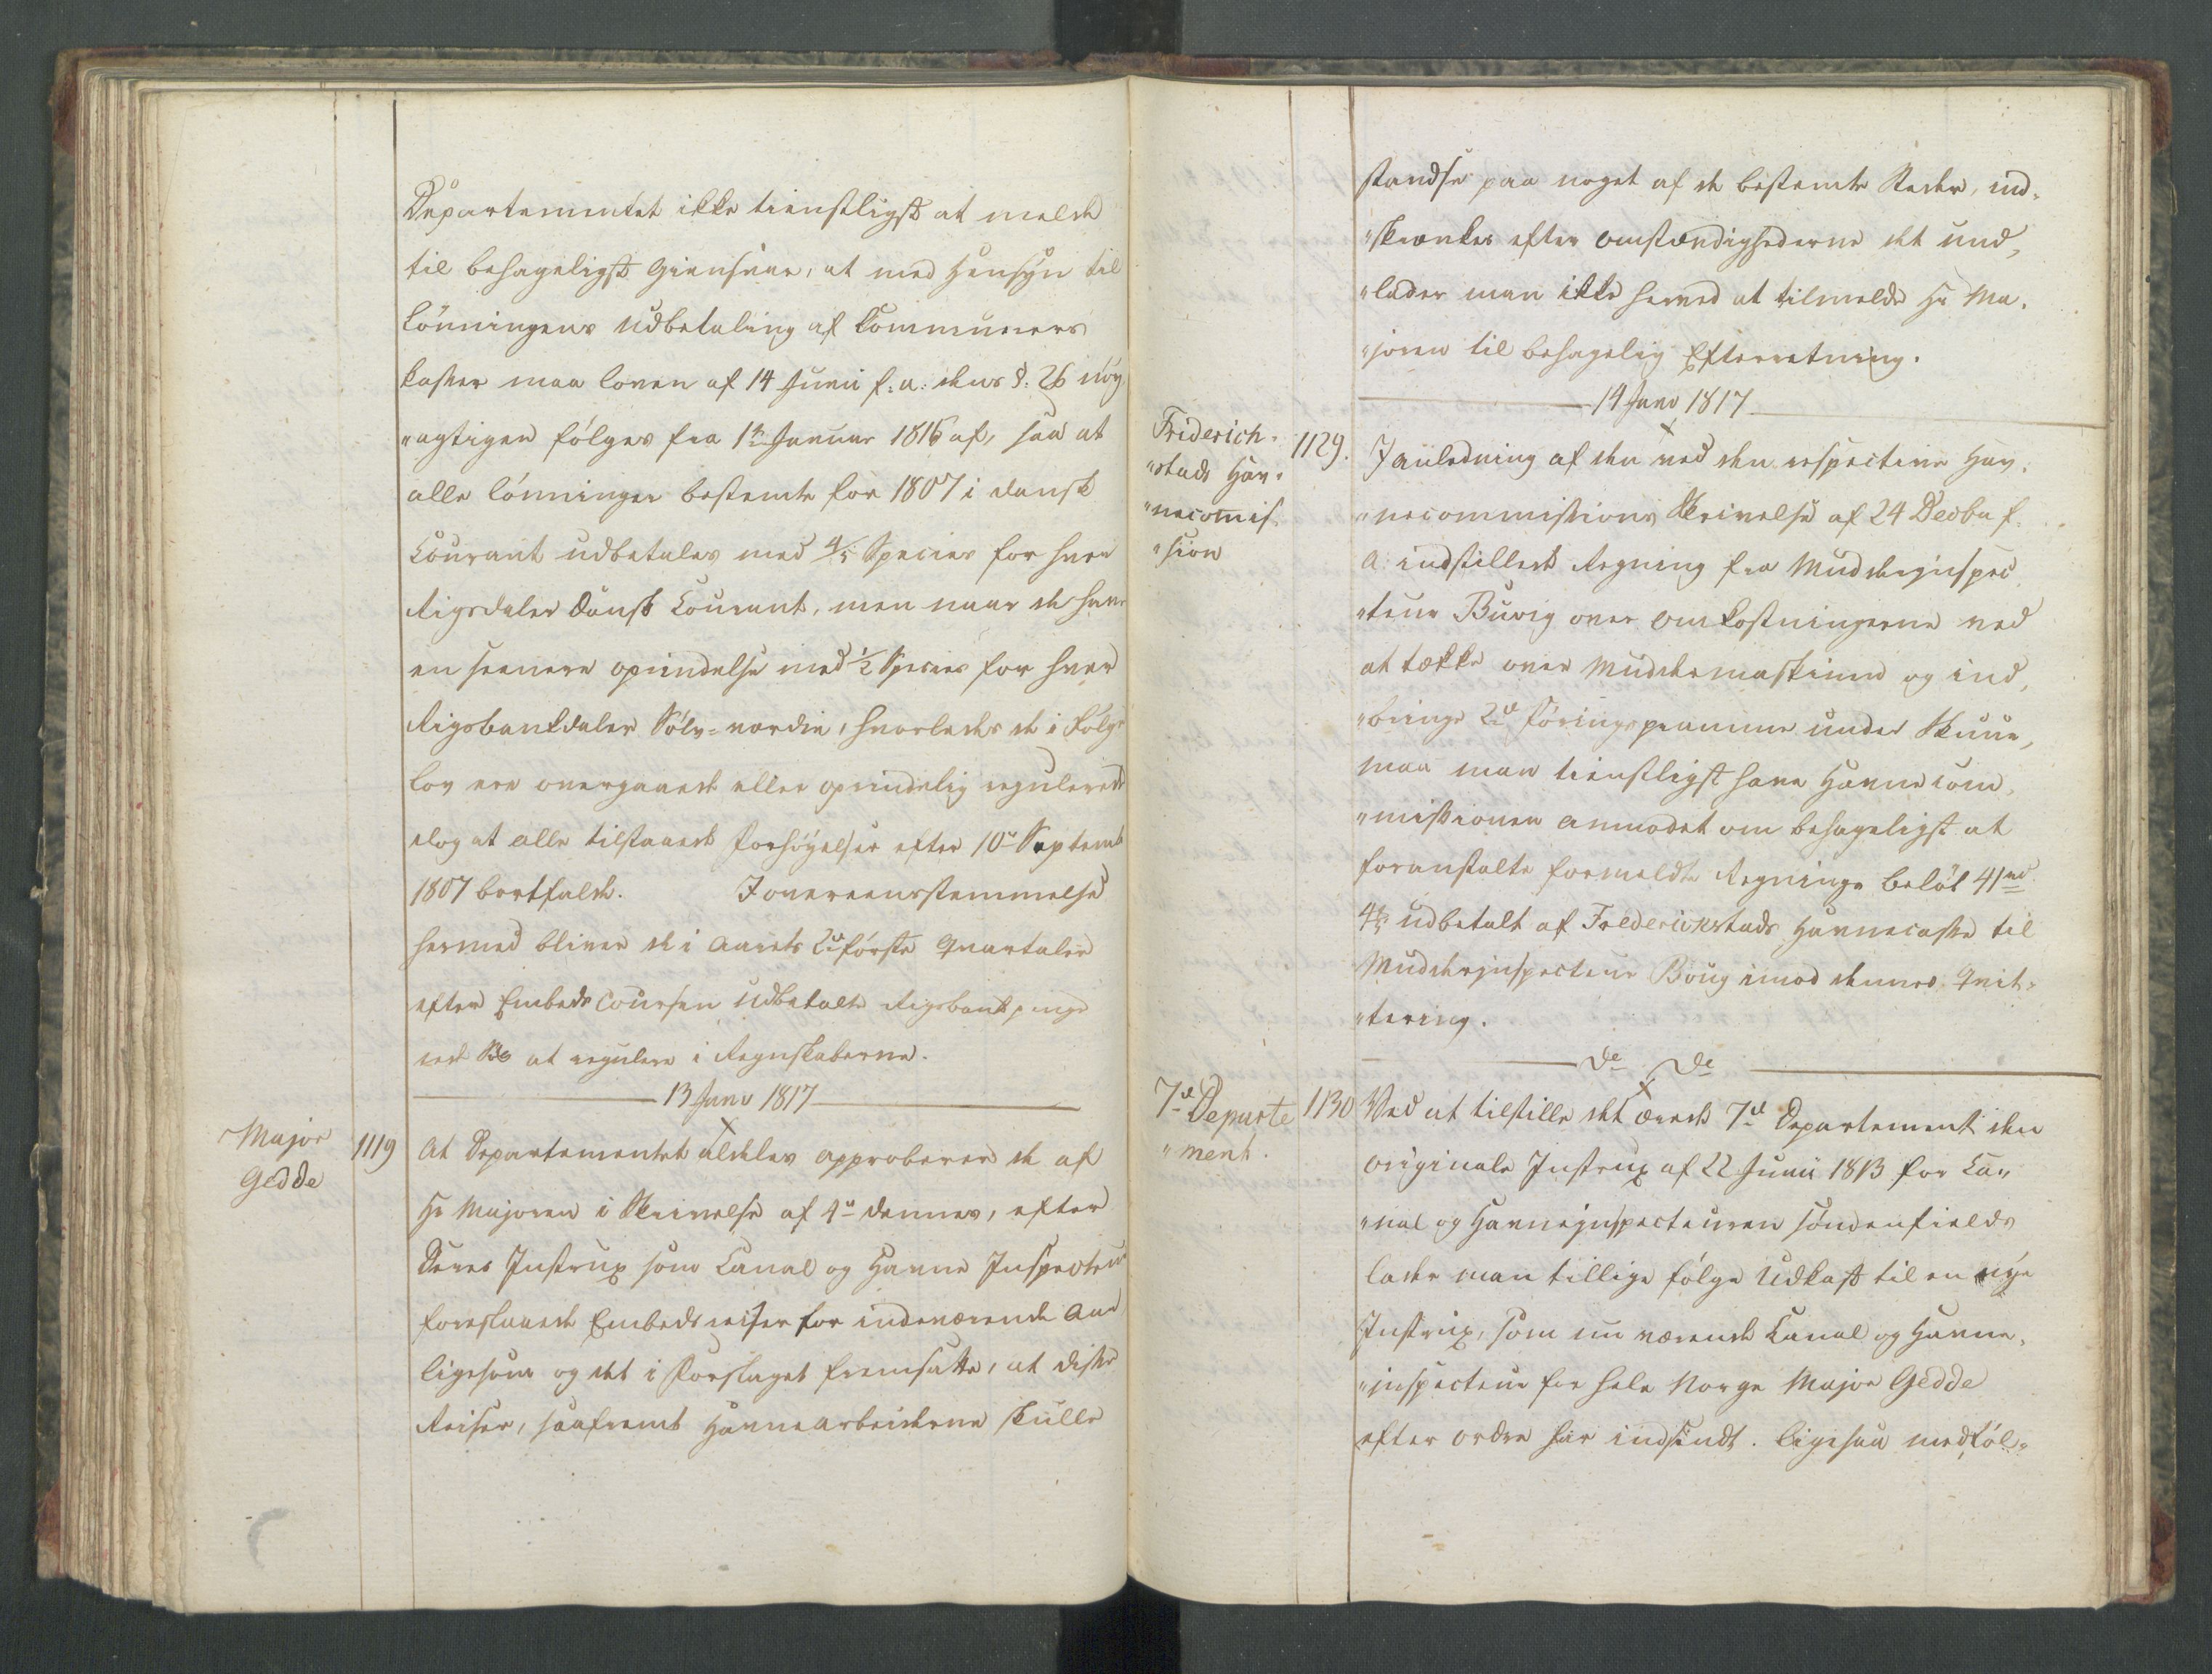 Departementet ikke tienstligst at melde
til behageligst Giensvar, at med Hensyn til
Lönningens Udbetaling af Communens
Kasser maa Loven af 14 Junii f: a: dens §: 26 nöy
"agtigen fölges fra 1te Januar 1816 af, saa at
alle Lönninger bestemte for 1807 i dansk
Courant udbetales med 4/5 Species for hver
Rigsdaler Dansk Courant, men naar de have
en seenere oprindelse med 1/2 Species for hver
Rigsbankdaler Sölv-værdie, hvorledes de i Fölge
Lov ere overgaaede eller oprindelig regulerede
dog at alle tilstaaede Forhöyelser efter 10de Septemb
1807 bortfalde. I overeensstemmelse
hermed bliver de i Aarets 2de förste Qvartaler
efter Embeds Coursen Udbetalte Rigsbankpenge
at regulere i Regnskaberne.
13 Janv 1817
Major
Gedde
1119
At Departementet aldeles approberer de af
Hr Majoren i Skrivelse af 4de dennes, efter
Deres Instrux som Canal og Havne Inspecteur
foreslaaede Embedsreiser for indeværende Aar
ligesom og det i Forslaget fremsatte, at disse
Reiser, saafremt Havnearbeiderne skulle
standse paa noget af de bestemte Steder, ind-
"skrænkes efter Omstændighederne det und-
"lader man ikke herved at tilmelde Hr Ma-
"joren til behagelig Efterretning.
14 Janv 1817
Friderich-
"stads Hav-
"necomis-
"sion
1129.
I anledning af den ved den respective Hav-
"necommissions Skrivelse af 24 Decbr f.
a. indstillede Regning fra Mudderinspec
"teur Buvig over Omkostningerne ved
at tække over Muddermaskinen og ind-
"bringe 2de Föringspramme under Skuur,
maa man tienstligst have Havnecom-
"missionen anmodet om behageligst at
foranstalte formeldte Regnings Belöb 41
4 udbetalt af Frederickstads Havnecasse til
Mudderinspecteur Boug imod dennes Qvit-
"tering.
De De
7de Departe
"ment.
1130
Ved at tilstille det ærede 7de Departement den
originale Instrux af 22 Junii 1813 for Ca-
"nal og Havneinspecteuren söndenfields
lader man tillige fölge Udkast til en nye
Instrux, som nu værende Canal og Havne-
"inspecteur for hele Norge Major Gedde
efter Ordre har indsendt. Ligesaa medföl-